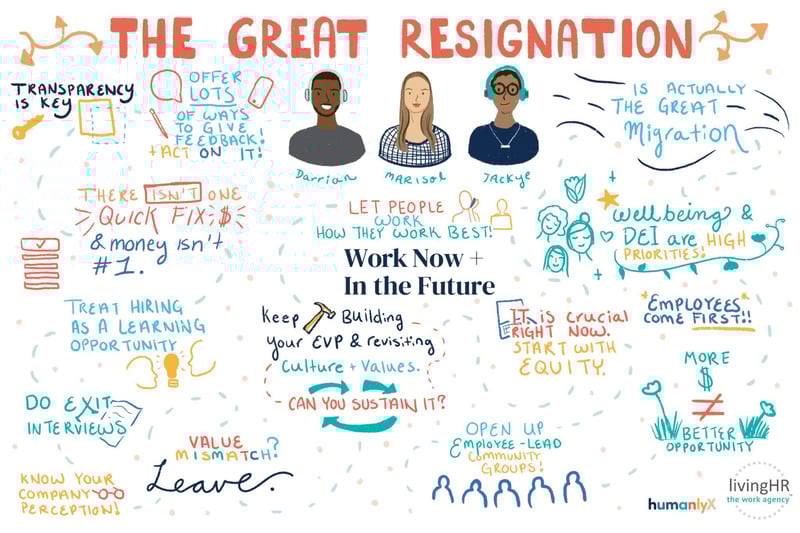 THE GREAT RESIGNATION
TRANSPARENCY
IS KEY
OFFER
LOTS
OF WAYS
TO GIVE
FEEDBACK!
+ ACT ON IT!
Darrian
MARISOL
JACKYE
IS ACTUALLY
THE GREAT
Migration
THERE ISN'T ONE
QUICK FIX: $
& money isn't
#1.
LET PEOPLE
WORK
HOW THEY WORK BEST!
Work Now +
In the Future
wellbeing &
DEI are HIGH
PRIORITIES!
TREAT HIRING
AS A LEARNING
OPPORTUNITY
Keep Building
your EVP & revisiting
Culture + Values.
CAN YOU SUSTAIN IT?
IT is crucial
RIGHT NOW.
START WITH
EQUITY.
*EMPLOYEES*
COME FIRST!!
MORE
$
≠
BETTER
OPPORTUNITY
DO EXIT
INTERVIEWS
VALUE
MISMATCH?
Leave.
OPEN UP
EMPLOYEE-LEAD
COMMUNITY
GROUPS!
KNOW YOUR
COMPANY
PERCEPTION!
humanlyX
livingHR
the work agency